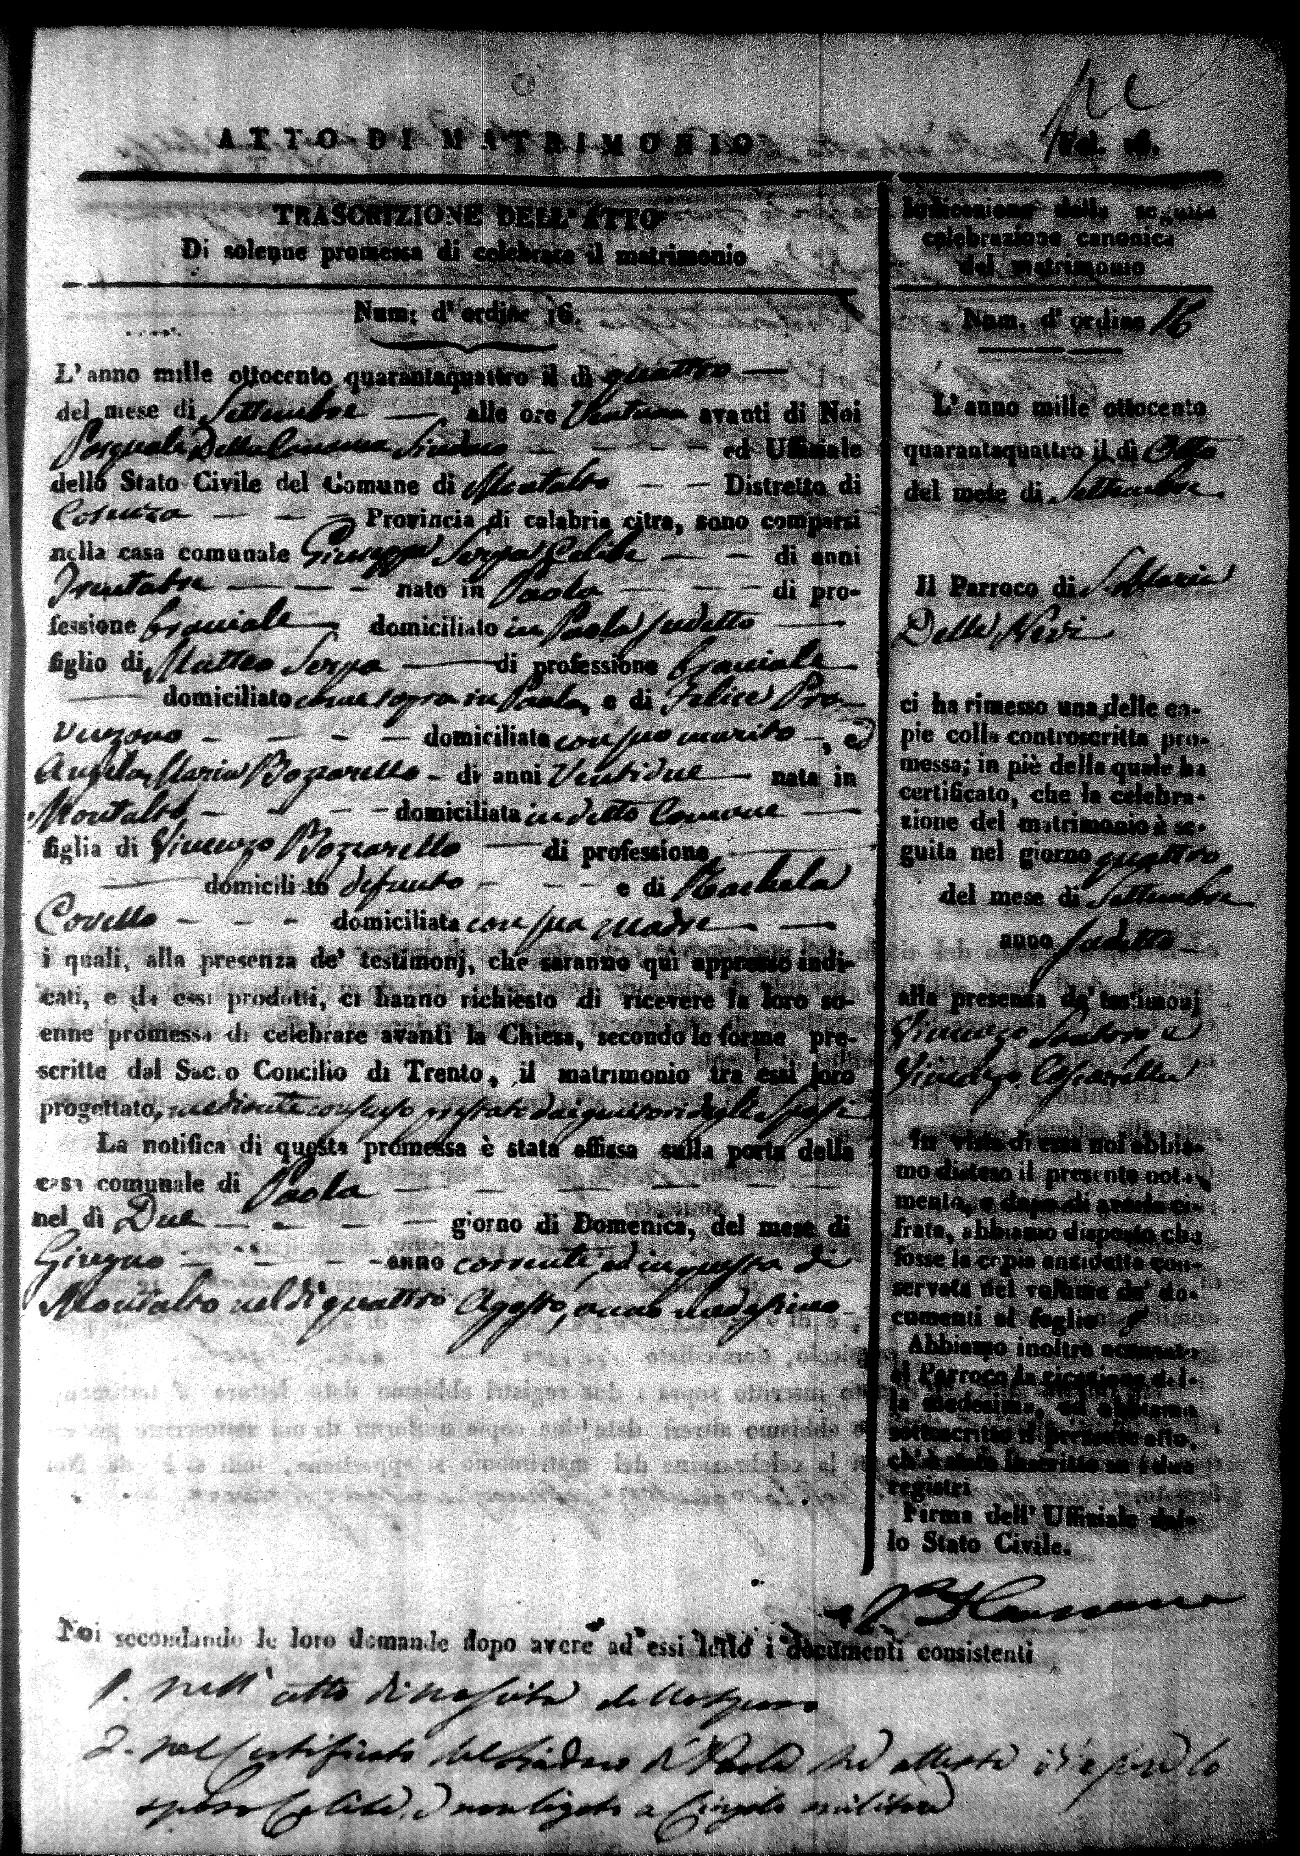 ATTO DI MATRIMONIO
Vol. 16.
TRASCRIZIONE DELL' ATTO
Di solenne promessa di celebrare il matrimonio
Num: d' ordine 16.
L' anno mille ottocento quarantaquattro il dì quattro
del mese di Settembre alle ore avanti di Noi
Pasquale Sindaco ed Uffiziale
dello Stato Civile del Comune di Montalto Distretto di
Cosenza Provincia di calabria citra, sono comparsi
nella casa comunale Giuseppe Serpa Celibe di anni
Trentatre nato in Paola di pro-
fessione braciale domiciliato in Paola sudetto
figlio di Matteo Serpa di professione braciale
domiciliato come sopra in Paola, e di Felice Pro-
venzano domiciliata con suo marito, ed
Angela Maria Bozzarello di anni Ventidue nata in
Montalto domiciliata in detto Comune
figlia di Vincenzo Bozzarello di professione
domiciliato defunto e di Rachela
Covello domiciliata con sua madre
i quali, alla presenza de' testimonj, che saranno qui appresso indi-
cati, e da essi prodotti, ci hanno richiesto di ricevere la loro so-
enne promessa di celebrare avanti la Chiesa, secondo le forme pre-
scritte dal Sacro Concilio di Trento, il matrimonio tra essi loro
progettato, mediante consenso prestato dai genitori degli Sposi
La notifica di questa promessa è stata affissa sulla porta della
casa comunale di Paola
nel dì Due giorno di Domenica, del mese di
Giugno anno corrente, ed in questa di
Montalto nel dì quattro Agosto, anno medesimo
Noi secondando le loro domande dopo avere ad essi letto i documenti consistenti
1. Nell' atto di nascita dello sposo
2. Nel Certificato del Sindaco di Paola che attesta essere lo
sposo Celibe, e non legato a Cingolo militare
Indicazione della seguita
celebrazione canonica
del matrimonio
Num. d' ordine 16
L' anno mille ottocento
quarantaquattro il dì Otto
del mese di Settembre
Il Parroco di S. Maria
Delle Nevi
ci ha rimesso una delle co-
pie colla controscritta pro-
messa; in piè della quale ha
certificato, che la celebra-
zione del matrimonio è se-
guita nel giorno quattro
del mese di Settembre
anno sudetto
alla presenza de' testimonj
Vincenzo Santoro e
Vincenzo
In vista di essa noi abbia-
mo disteso il presente nota-
mento, e dopo di averla ci-
frata, abbiamo disposto che
fosse la copia anzidetta con-
servata nel volume de' do-
cumenti al foglio 8
Abbiamo inoltre accusato
al Parroco la ricezione del-
la medesima, ed abbiamo
sottoscritto il presente atto,
ch' è stato inscritto su i due
registri
Firma dell' Uffiziale del-
lo Stato Civile.